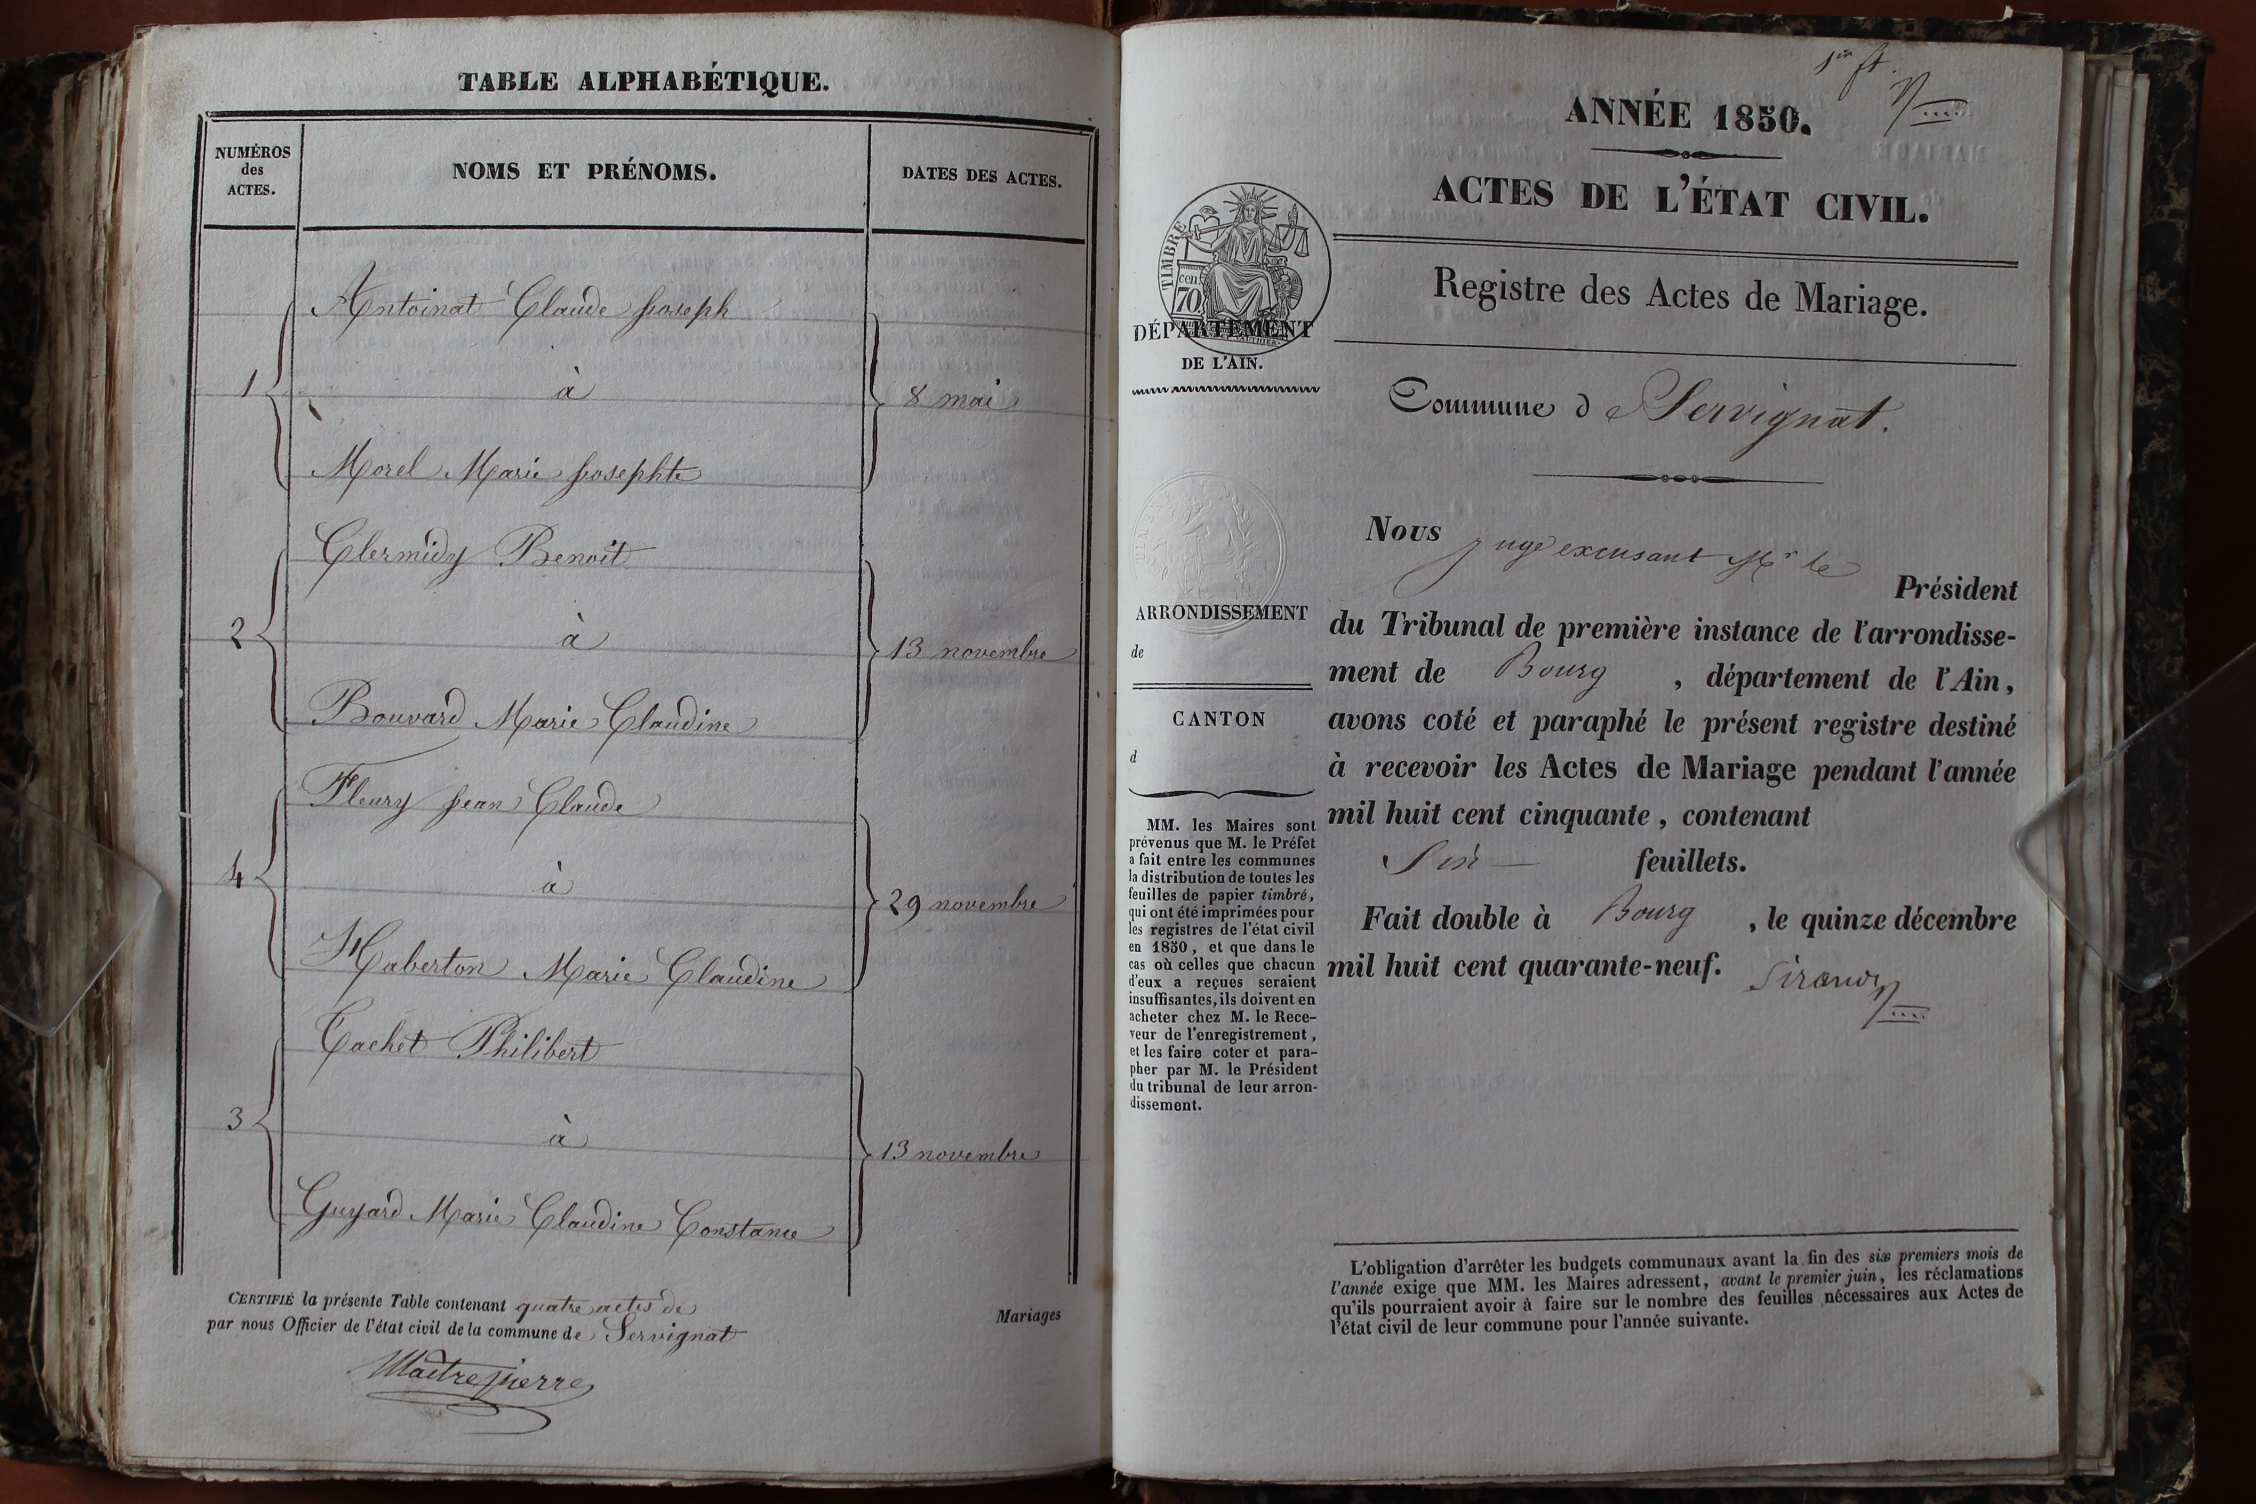 TABLE ALPHABÉTIQUE.
NUMÉROS
des
ACTES.
NOMS ET PRÉNOMS.
DATES DES ACTES.
Antoinat Claude Joseph
1 à 8 mai
Morel Marie Josephte
Clermidy Benoit
2 à 13 novembre
Bouvard Marie Claudine
Fleury Jean Claude
4 à 29 novembre
Haberton Marie Claudine
Tachet Philibert
3 à 13 novembre
Guyard Marie Claudine Constance
CERTIFIÉ la présente Table contenant quatre actes de Mariages
par nous Officier de l'état civil de la commune de Servignat
Maitrepierre
ANNÉE 1850.
ACTES DE L'ÉTAT CIVIL.
Registre des Actes de Mariage.
TIMBRE
cen.
70
DÉPARTEMENT
DE L'AIN.
Commune de Servignat.
ARRONDISSEMENT
de
CANTON
d
MM. les Maires sont
prévenus que M. le Préfet
a fait entre les communes
la distribution de toutes les
feuilles de papier timbré,
qui ont été imprimées pour
les registres de l'état civil
en 1850, et que dans le
cas où celles que chacun
d'eux a reçues seraient
insuffisantes, ils doivent en
acheter chez M. le Rece-
veur de l'enregistrement,
et les faire coter et para-
pher par M. le Président
du tribunal de leur arron-
dissement.
Nous juge excusant Mr le Président
du Tribunal de première instance de l'arrondisse-
ment de Bourg, département de l'Ain,
avons coté et paraphé le présent registre destiné
à recevoir les Actes de Mariage pendant l'année
mil huit cent cinquante, contenant
Six feuillets.
Fait double à Bourg, le quinze décembre
mil huit cent quarante-neuf.
L'obligation d'arrêter les budgets communaux avant la fin des six premiers mois de
l'année exige que MM. les Maires adressent, avant le premier juin, les réclamations
qu'ils pourraient avoir à faire sur le nombre des feuilles nécessaires aux Actes de
l'état civil de leur commune pour l'année suivante.